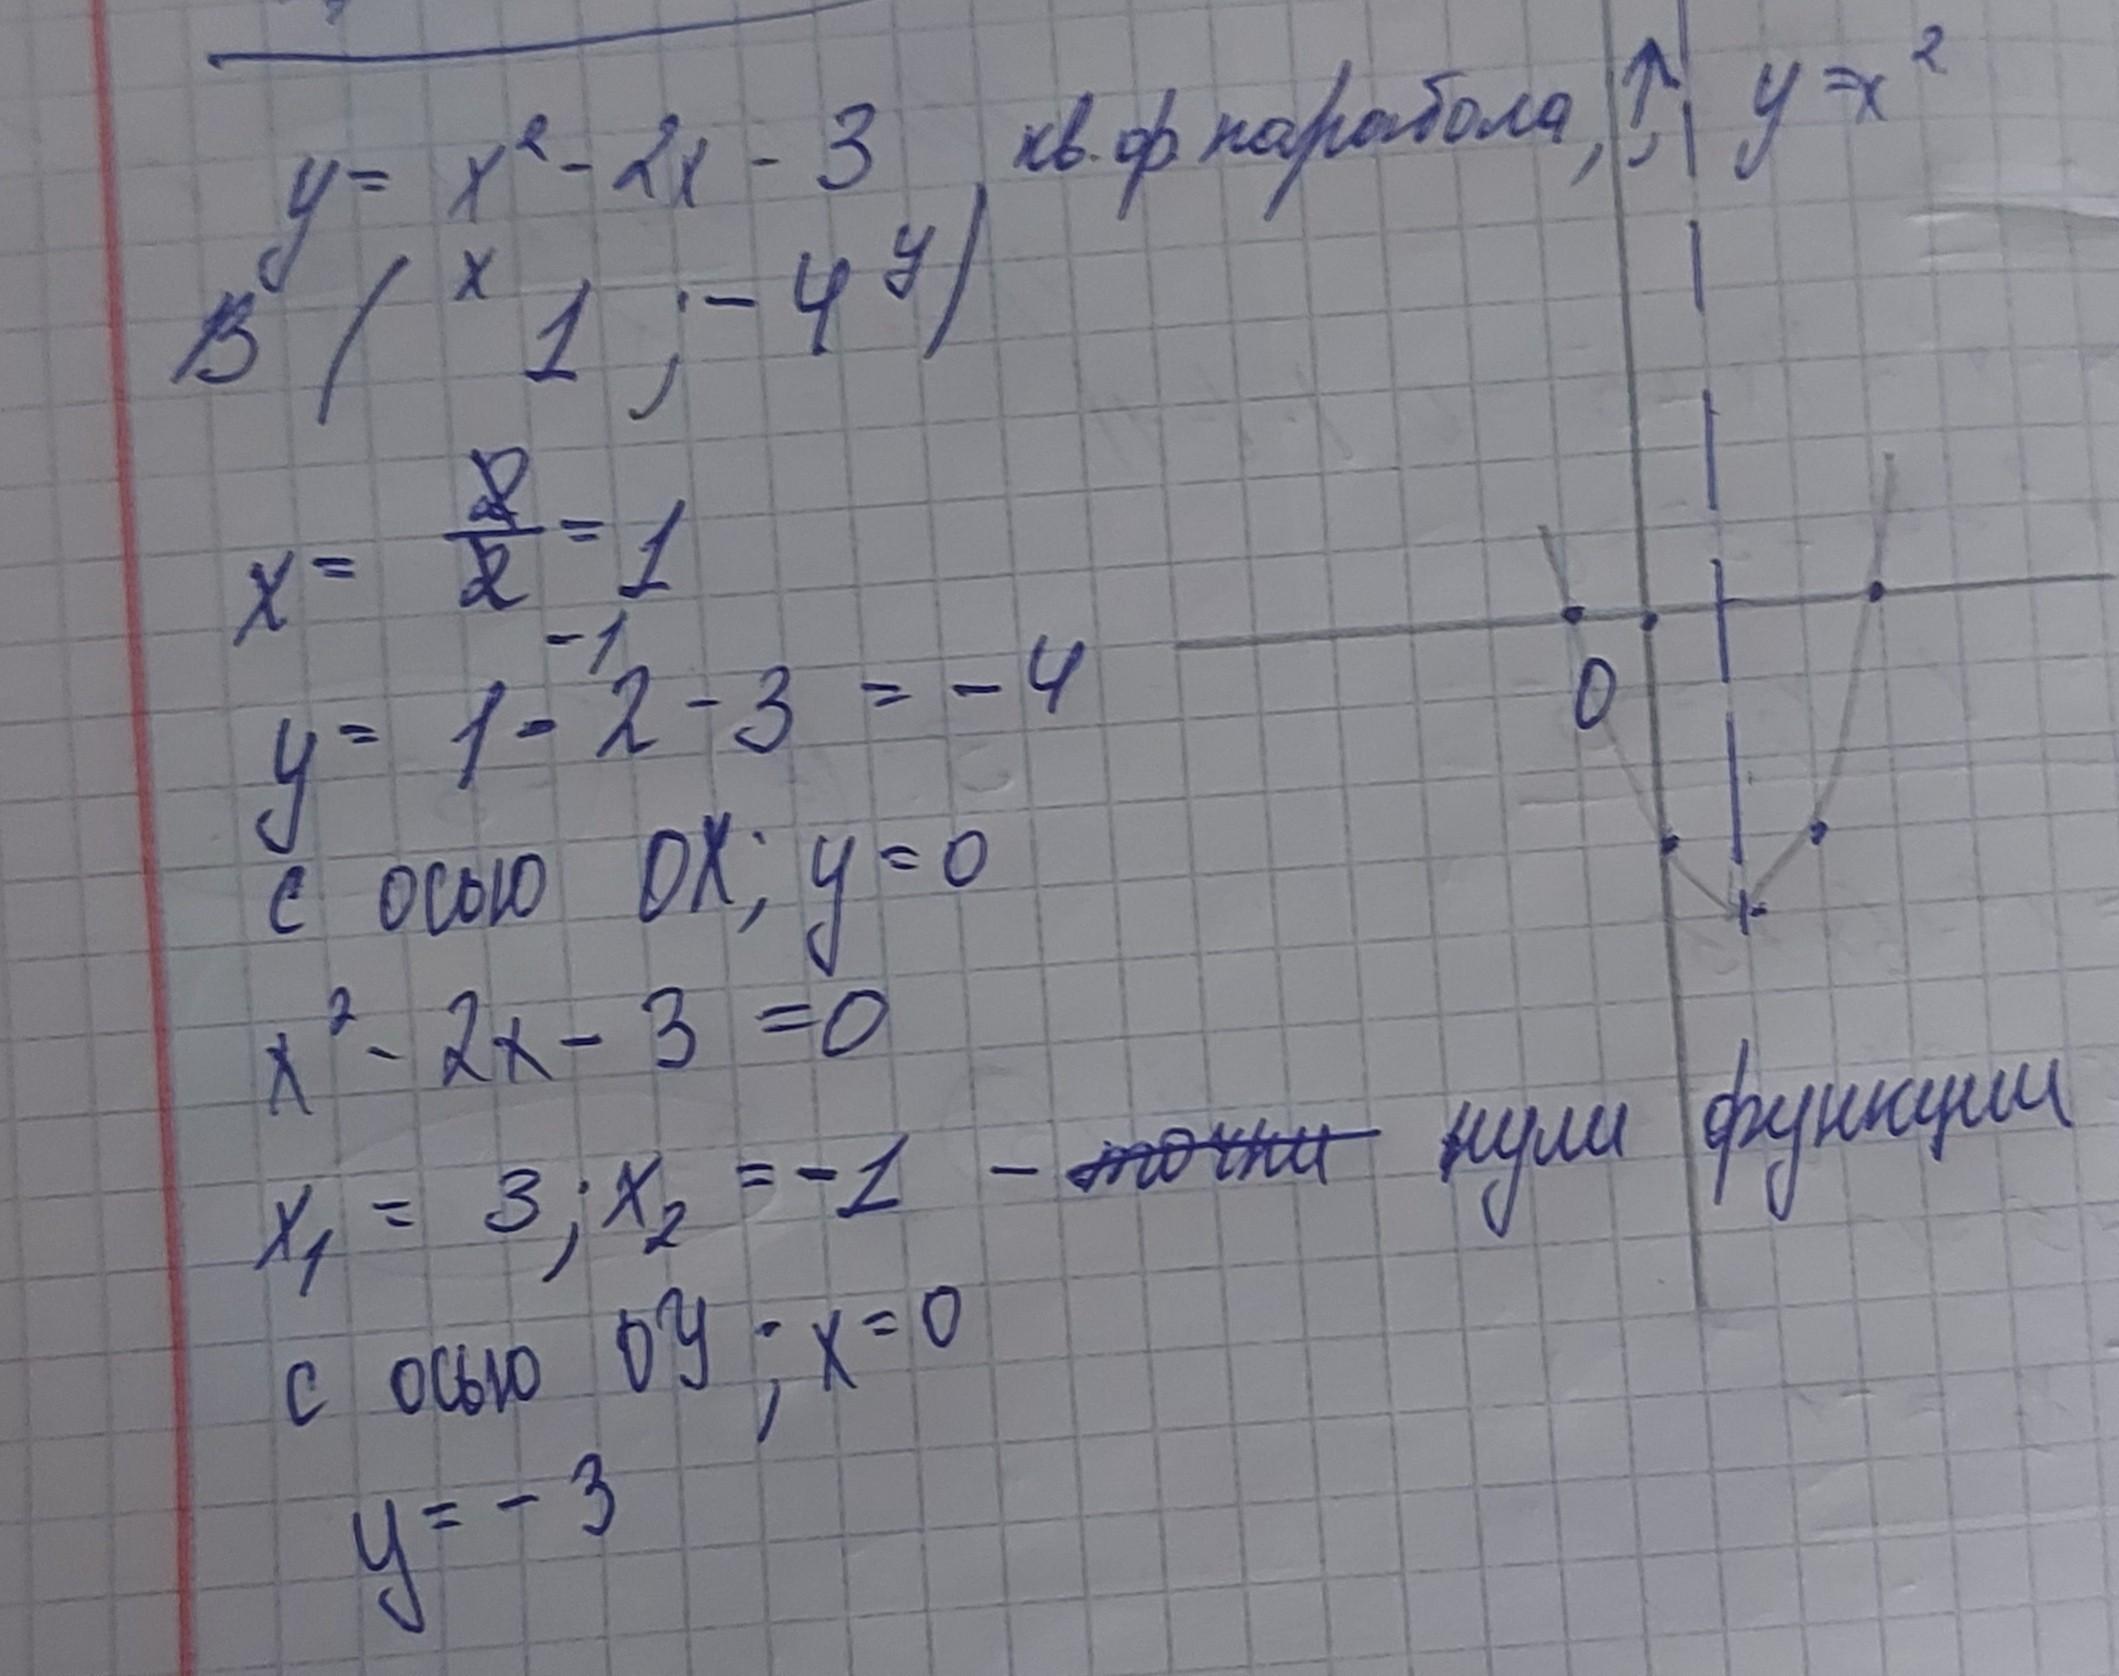 y = x² - 2x - 3, кв. ф парабола, ↑; y = x²
B ( x 1 ; - 4 y )
x = 2/2 = 1
-1
y = 1 - 2 - 3 = - 4
с осью OX; y = 0
0
x² - 2x - 3 = 0
x₁ = 3; x₂ = -1 - точки нули функции
с осью OY; x = 0
y = - 3